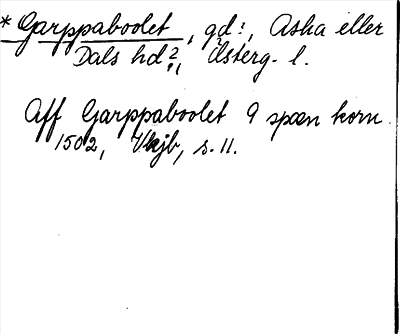 * Garppaboolet, gd?, Aska eller
Dals hd?, Österg. l.
Aff Garppaboolet 9 spæn korn
1502, Vkjb, s. 11.